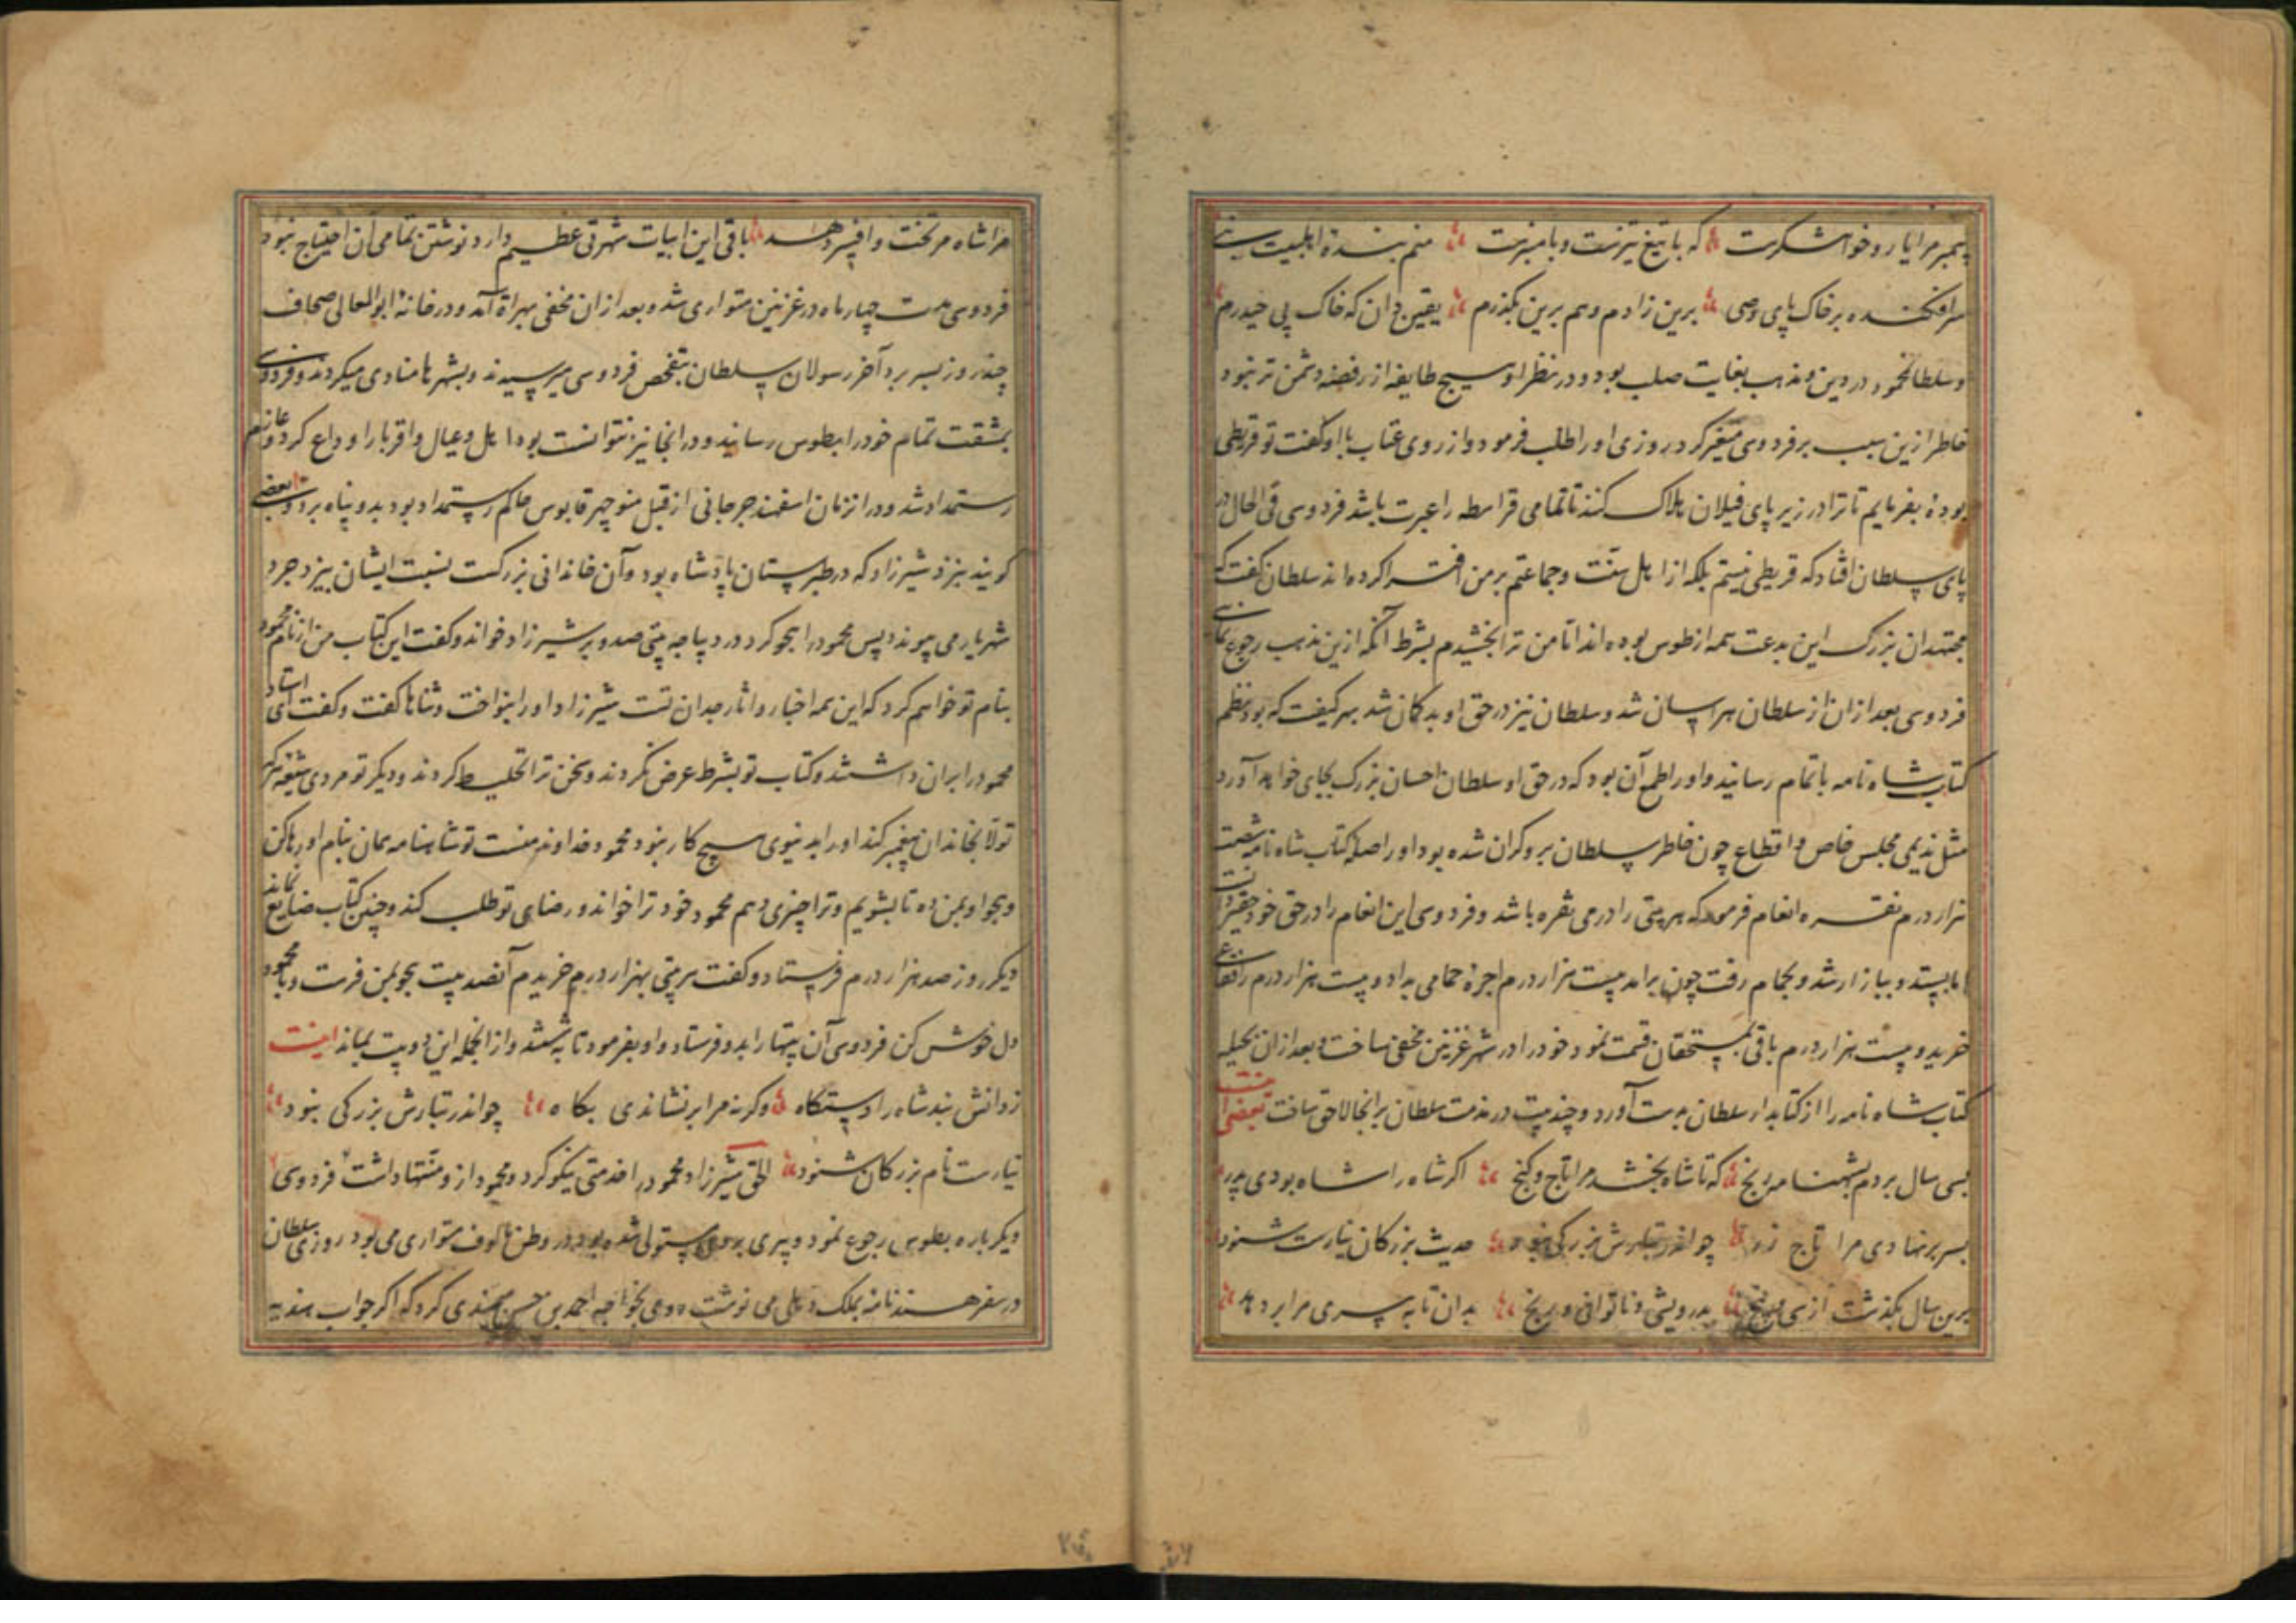 پیمبر مرا یار و خواهشگرست که با تیغ تیزست و با منبرست منم بندهٔ اهلبیت نبی
سرافکنده بر خاک پای وصی برین زادم و هم برین بگذرم یقین دان که خاک پی حیدرم
و سلطان محمود در دین و مذهب بغایت صلب بود و در نظر او هیچ طایفه از رفضه دشمن تر نبود
خاطر ازین سبب بر فردوسی متغیر کرد روزی او را طلب فرمود و از روی عتاب با او کفت تو قرمطی
بودهٔ بفرمایم تا ترا در زیر پای فیلان هلاک کنند تا تمامی قرامطه را عبرت باشد فردوسی فی الحال در
پای سلطان افتاد که قرمطی نیستم بلکه از اهل سنت و جماعتم بر من افترا کرده اند سلطان کفت که
مجتهدان بزرک این بدعت همه از طوس بوده اند اما من ترا بخشیدم بشرط آنکه ازین مذهب رجوع نمائی
فردوسی بعد از ان از سلطان هراسان شد و سلطان نیز در حق او بدکمان شد بهر کیفیت که بود نظم
کتاب شاه نامه باتمام رسانید و او را طمع آن بود که در حق او سلطان احسان بزرک بجای خواهد آورد
مثل ندیمی مجلس خاص و اقطاع چون خاطر سلطان برو کران شده بود او را صلهٔ کتاب شاه نامه شصت
هزار درم نقره انعام فرمود که هر بیتی را درمی نقره باشد و فردوسی این انعام را در حق خود حقیر دانست
اما بستد و ببازار شد و بحمام رفت چون برامد بیست هزار درم اجرهٔ حمامی بداد و بیست هزار درم را فقاعی
خرید و بیست هزار درم باقی بمستحقان قسمت نمود خود را در شهر غزنین مخفی ساخت و بعد از ان بحیله
کتاب شاه نامه را از کتابدار سلطان بدست آورد و چند بیت در مذمت سلطان برانجا لاحق ساخت بعضی اینست
بسی سال بردم بشهنامه رنج که تا شاه بخشد مرا تاج و کنج اکر شاه را شاه بودی پدر
بسر بر نهادی مرا تاج زر چو اندر تبارش بزرکی نبود حدیث بزرکان نیارست شنود
برین سال بکذشت از سی و پنج بدرویشی و ناتوانی و رنج بدان تا به پیری مرا بر دهد
مرا شاه مر تخت و افسر دهد باقی این ابیات شهرتی عظیم دارد نوشتن تمامی آن احتیاج نبود
فردوسی مدت چهار ماه در غزنین متواری شد و بعد از ان مخفی بهراة آمد و در خانهٔ ابوالمعالی صحاف
چند روز بسر برد آخر رسولان سلطان بتفحص فردوسی میرسیدند و بشهرها منادی میکردند و فردوسی
بمشقت تمام خود را بطوس رسانید و در انجا نیز نتوانست بود اهل و عیال و اقربا را وداع کرد و عازم
رستمدار شد و در ان زمان اسفند جرجانی از قبل منوچهر قابوس حاکم رستمدار بود بدو پناه برد و بعضی
کویند بنزد شیرزاد که در طبرستان پادشاه بود و آن خاندانی بزرکست نسبت ایشان بیزدجرد
شهریار می پیوندد پس محمود را هجو کرد در دیباجه بیتی صد و بر شیرزاد خواند و کفت این کتاب من از نام محمود
بنام تو خواهم کرد که این همه اخبار و اثار جدان تست شیرزاد او را بنواخت و ثناها کفت و کفت ای استاد
محمود را بران داشتند و کتاب تو بشرط عرض نکردند و سخن ترا تخلیط کردند و دیکر تو مردی شیعه هر که
تولا بخاندان پیغمبر کند او را به دنیوی هیچ کار نبود محمود خداوند منست تو شاهنامه همان بنام او رها کن
و هجو او بمن ده تا بشویم و ترا چیزی دهم محمود خود ترا خواند و رضای تو طلب کند و چنین کتاب ضایع نماند
دیکر روز صد هزار درم فرستاد و کفت هر بیتی بهزار درم خریدم آنصد بیت بجو بمن فرست و با محمود
دل خوش کن فردوسی آن بیتها را بدو فرستاد و او بفرمود تا بشستند و از انجمله این دو بیت بماند اینست
ز دانش نبد شاه را دستکاه و کرنه مرا بر نشاندی بکاه چو اندر تبارش بزرکی نبود
نیارست نام بزرکان شنود الحق شیرزاد محمود را خدمتی نیکو کرد و محمود از و منتها داشت فردوسی
دیکر باره بطوس رجوع نمود و پیری بر وی مستولی شده بود در وطن مالوف متواری می بود روزی سلطان
در سفر هند نامه بملک دهلی می نوشت روی بخواجه احمد بن حسن میمندی کرد که اکر جواب هند به